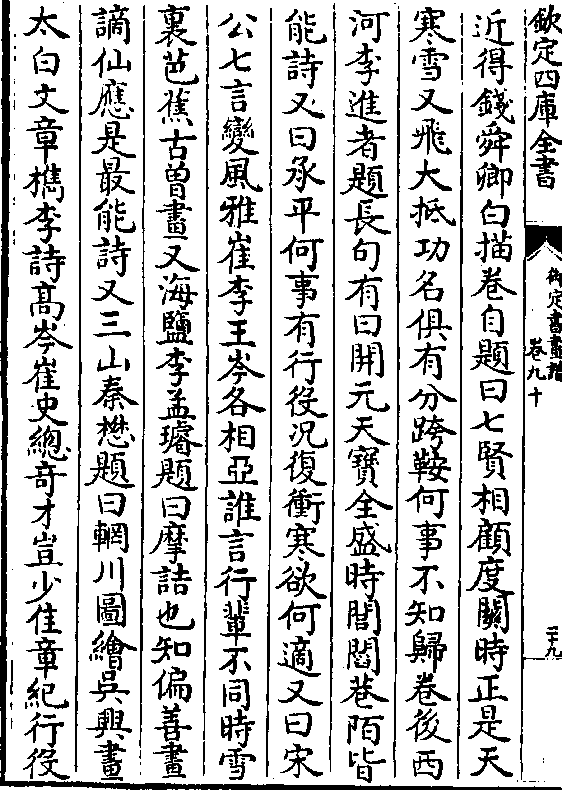 欽定四庫全書
御定書畫譜
卷九十
二十九
近得錢舜卿白描卷自題曰七賢相顧度關時正是天
寒雪又飛大抵功名俱有分跨鞍何事不知歸卷後西
河李進者題長句有曰開元天寶全盛時閭閻巷陌皆
能詩又曰承平何事有行役况復衝寒欲何適又曰宋
公七言變風雅崔李王岑各相亞誰言行輩不同時雪
裏芭蕉古曽畫又海鹽李孟璿題曰摩詰也知偏善畫
謫仙應是最能詩又三山秦懋題曰輞川圖繪吳興畫
太白文章檇李詩髙岑崔史總竒才豈少佳章紀行役